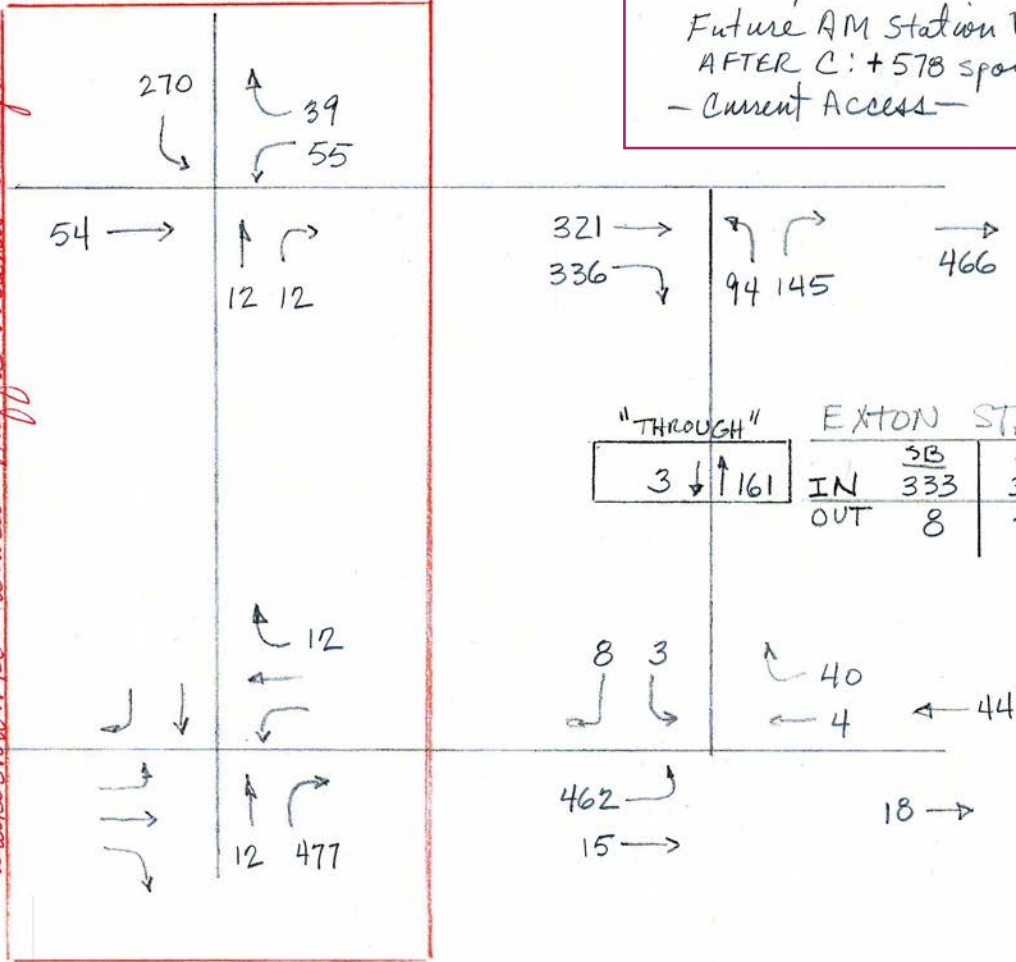 Future AM Station
AFTER C: +578
- Current Access -
270
39
55
54
12 12
321
336
94 145
466
"THROUGH"
3 161
EXTON
SB
IN 333
OUT 8
12
8 3
40
4
44
12 477
462
15
18